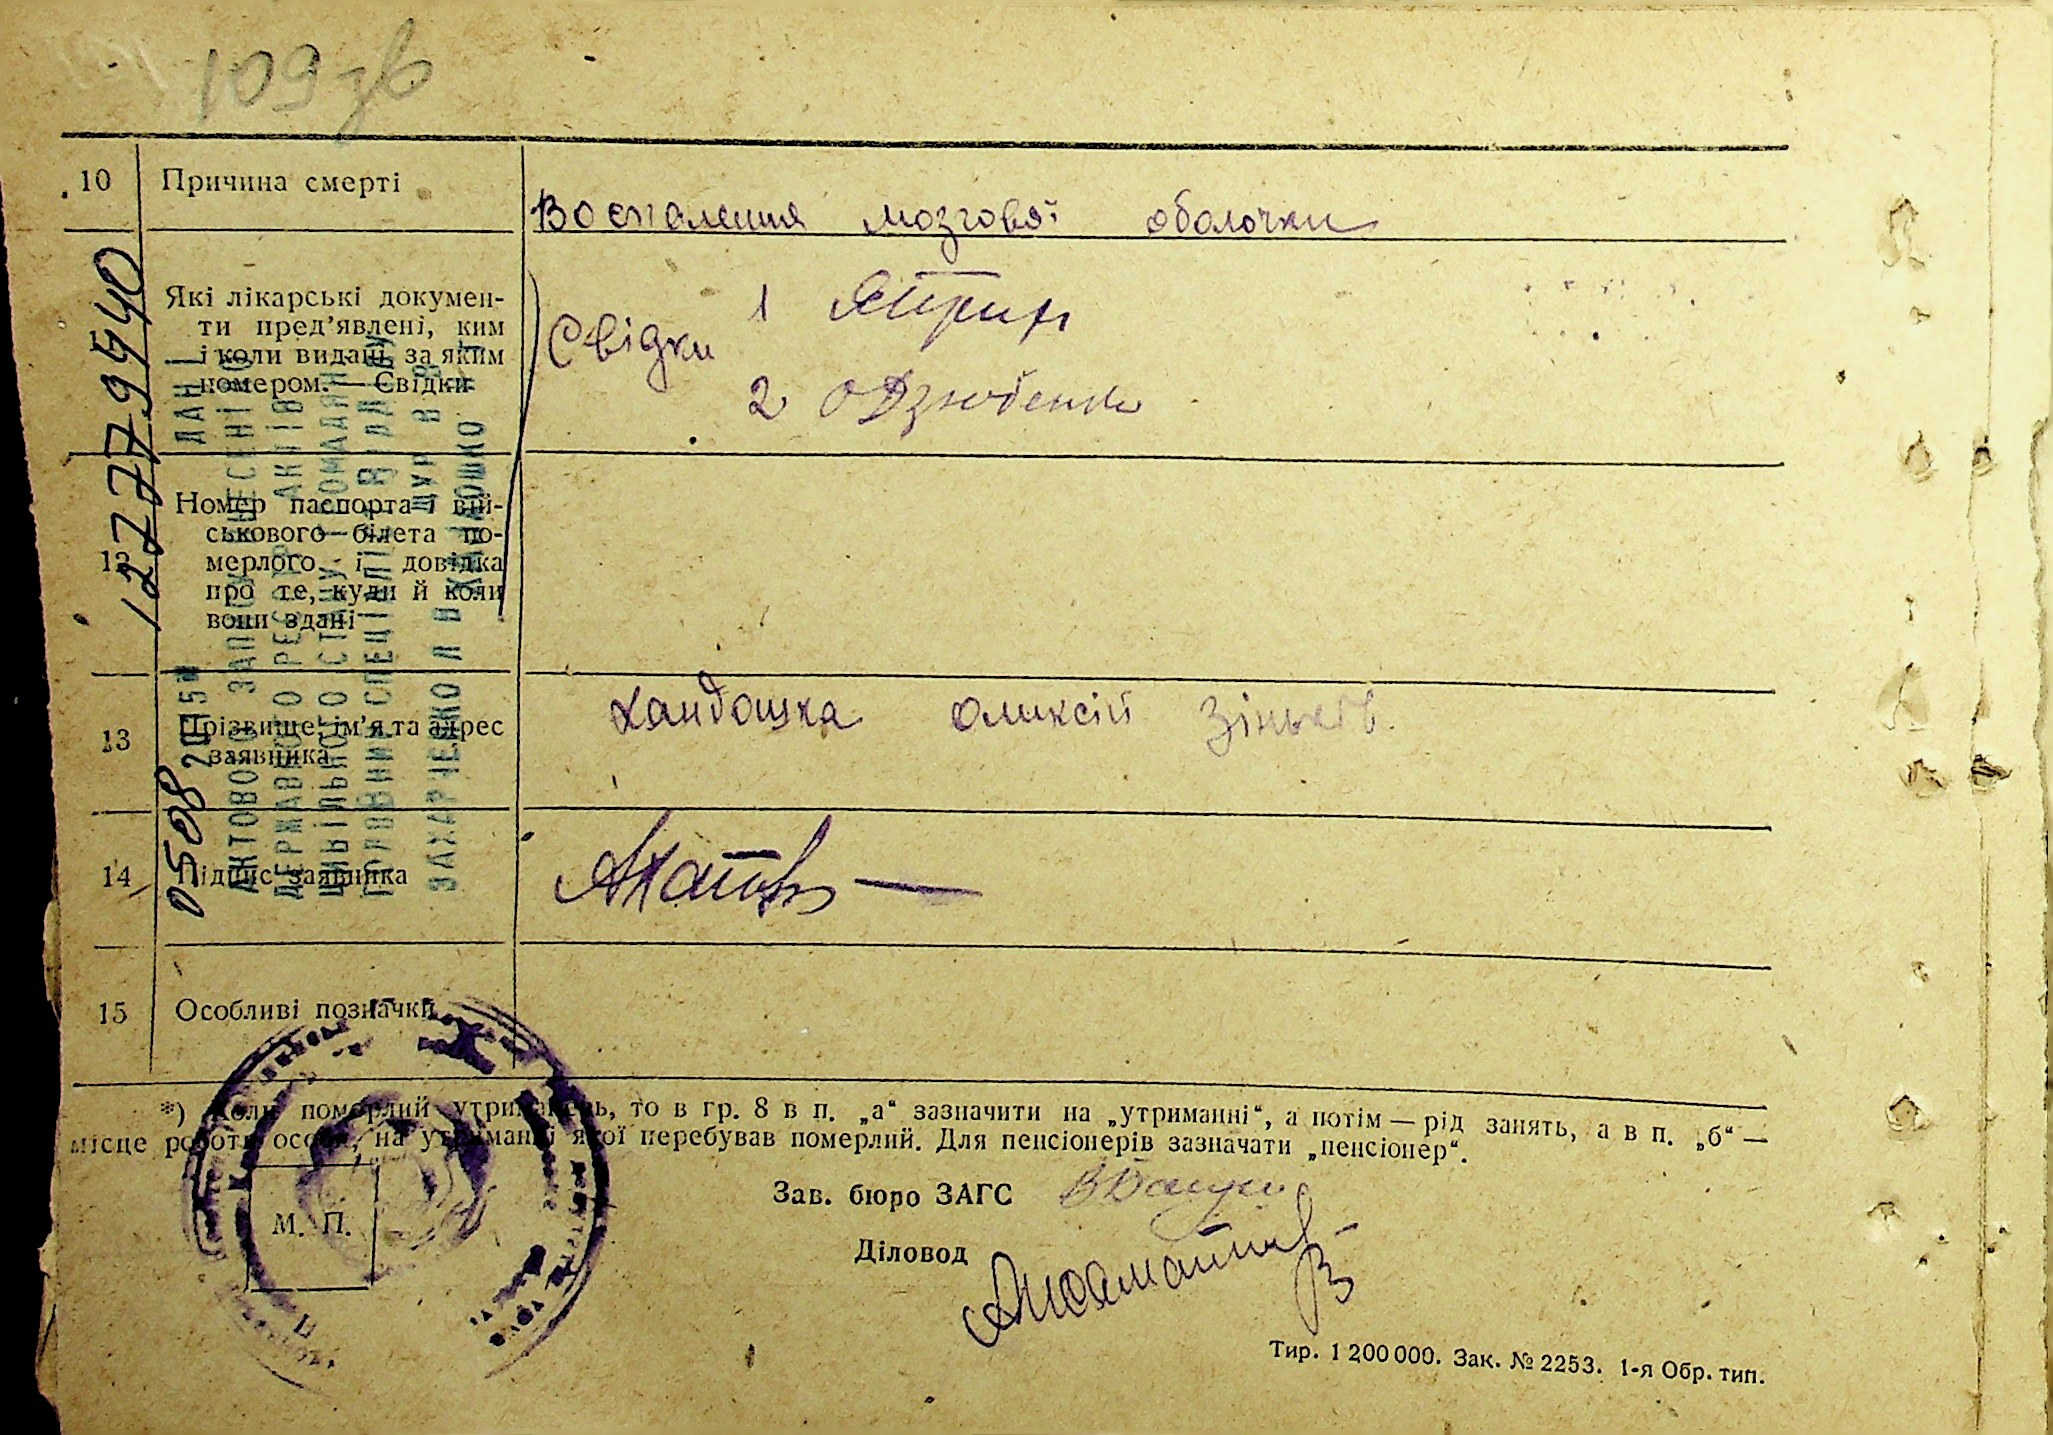 10 Причина смерті
Воспалення мозговоі оболочки
Які лікарські докумен-
ти пред’явлені, ким
і коли видані, за яким
номером. — Свідки
Свідки 1
2 Дзюбенко
12 Номер паспорта і вій-
ськового білета по-
мерлого і довідка
про те, куди й коли
вони здані
13 Прізвище, ім’я та адрес
заявника
Хандошка Оликсій Зіньків.
14 Підпис заявника
15 Особливі позначки
*) Коли померлий утриманець, то в гр. 8 в п. „а“ зазначити на „утриманні“, а потім — рід занять, а в п. „б“ —
місце роботи особи, на утриманні якої перебував померлий. Для пенсіонерів зазначати „пенсіонер“.
М. П.
Зав. бюро ЗАГС
Діловод
Тир. 1 200 000. Зак. № 2253. 1-я Обр. тип.
12779940
0508 2015
ДАНІ
АКТОВОГО ЗАПИСУ ВНЕСЕНІ ДО
ДЕРЖАВНОГО РЕЄСТРУ АКТІВ
ЦИВІЛЬНОГО СТАНУ ГРОМАДЯН
ГОЛОВНИЙ СПЕЦІАЛІСТ ВІДДІЛУ